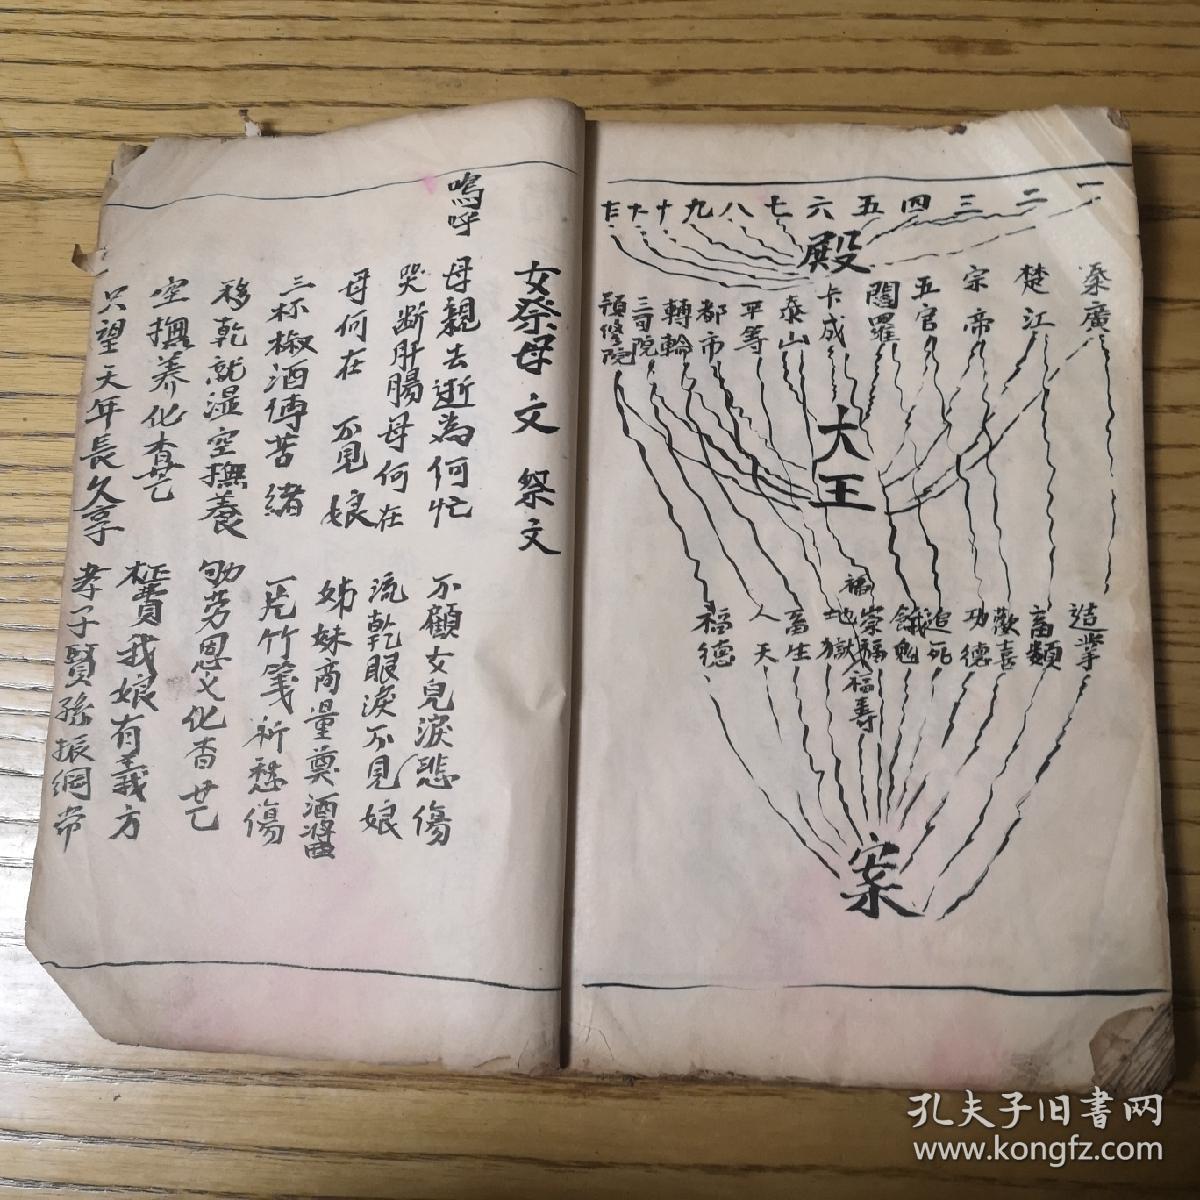 一 二 三 四 五 六 七 八 九 十
殿
秦廣 楚江 宗帝 五官 閻羅 卡成 泰山 平等 都市 轉輪 三司院 預修院
大王
造業 畜類 歡喜 功德 追死 餓鬼 崇福 福壽 地獄 畜生 人天 福德
案
女祭母文 祭文
嗚呼
母親去逝為何忙 不顧女兒淚悲傷
哭断肝腸母何在 流乾眼淚不見娘
母何在 不見娘 姊妹商量奠酒漿
三杯椒酒傅苦緒 一炷竹箋祈愁傷
移乾就湿空撫養 劬劳恩义化杳茫
空撫养化杳茫 我娘有義方
只望天年長久享 孝子賢孫振綱常
孔夫子旧書网
www.kongfz.com